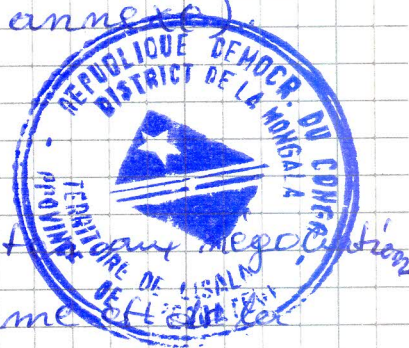 annexe).
REPUBLIQUE DEMOCR. DU CONGO
DISTRICT DE LA MONGALA
TERRITOIRE DE LISALA
PROVINCE DE L'EQUATEUR
aux négociation